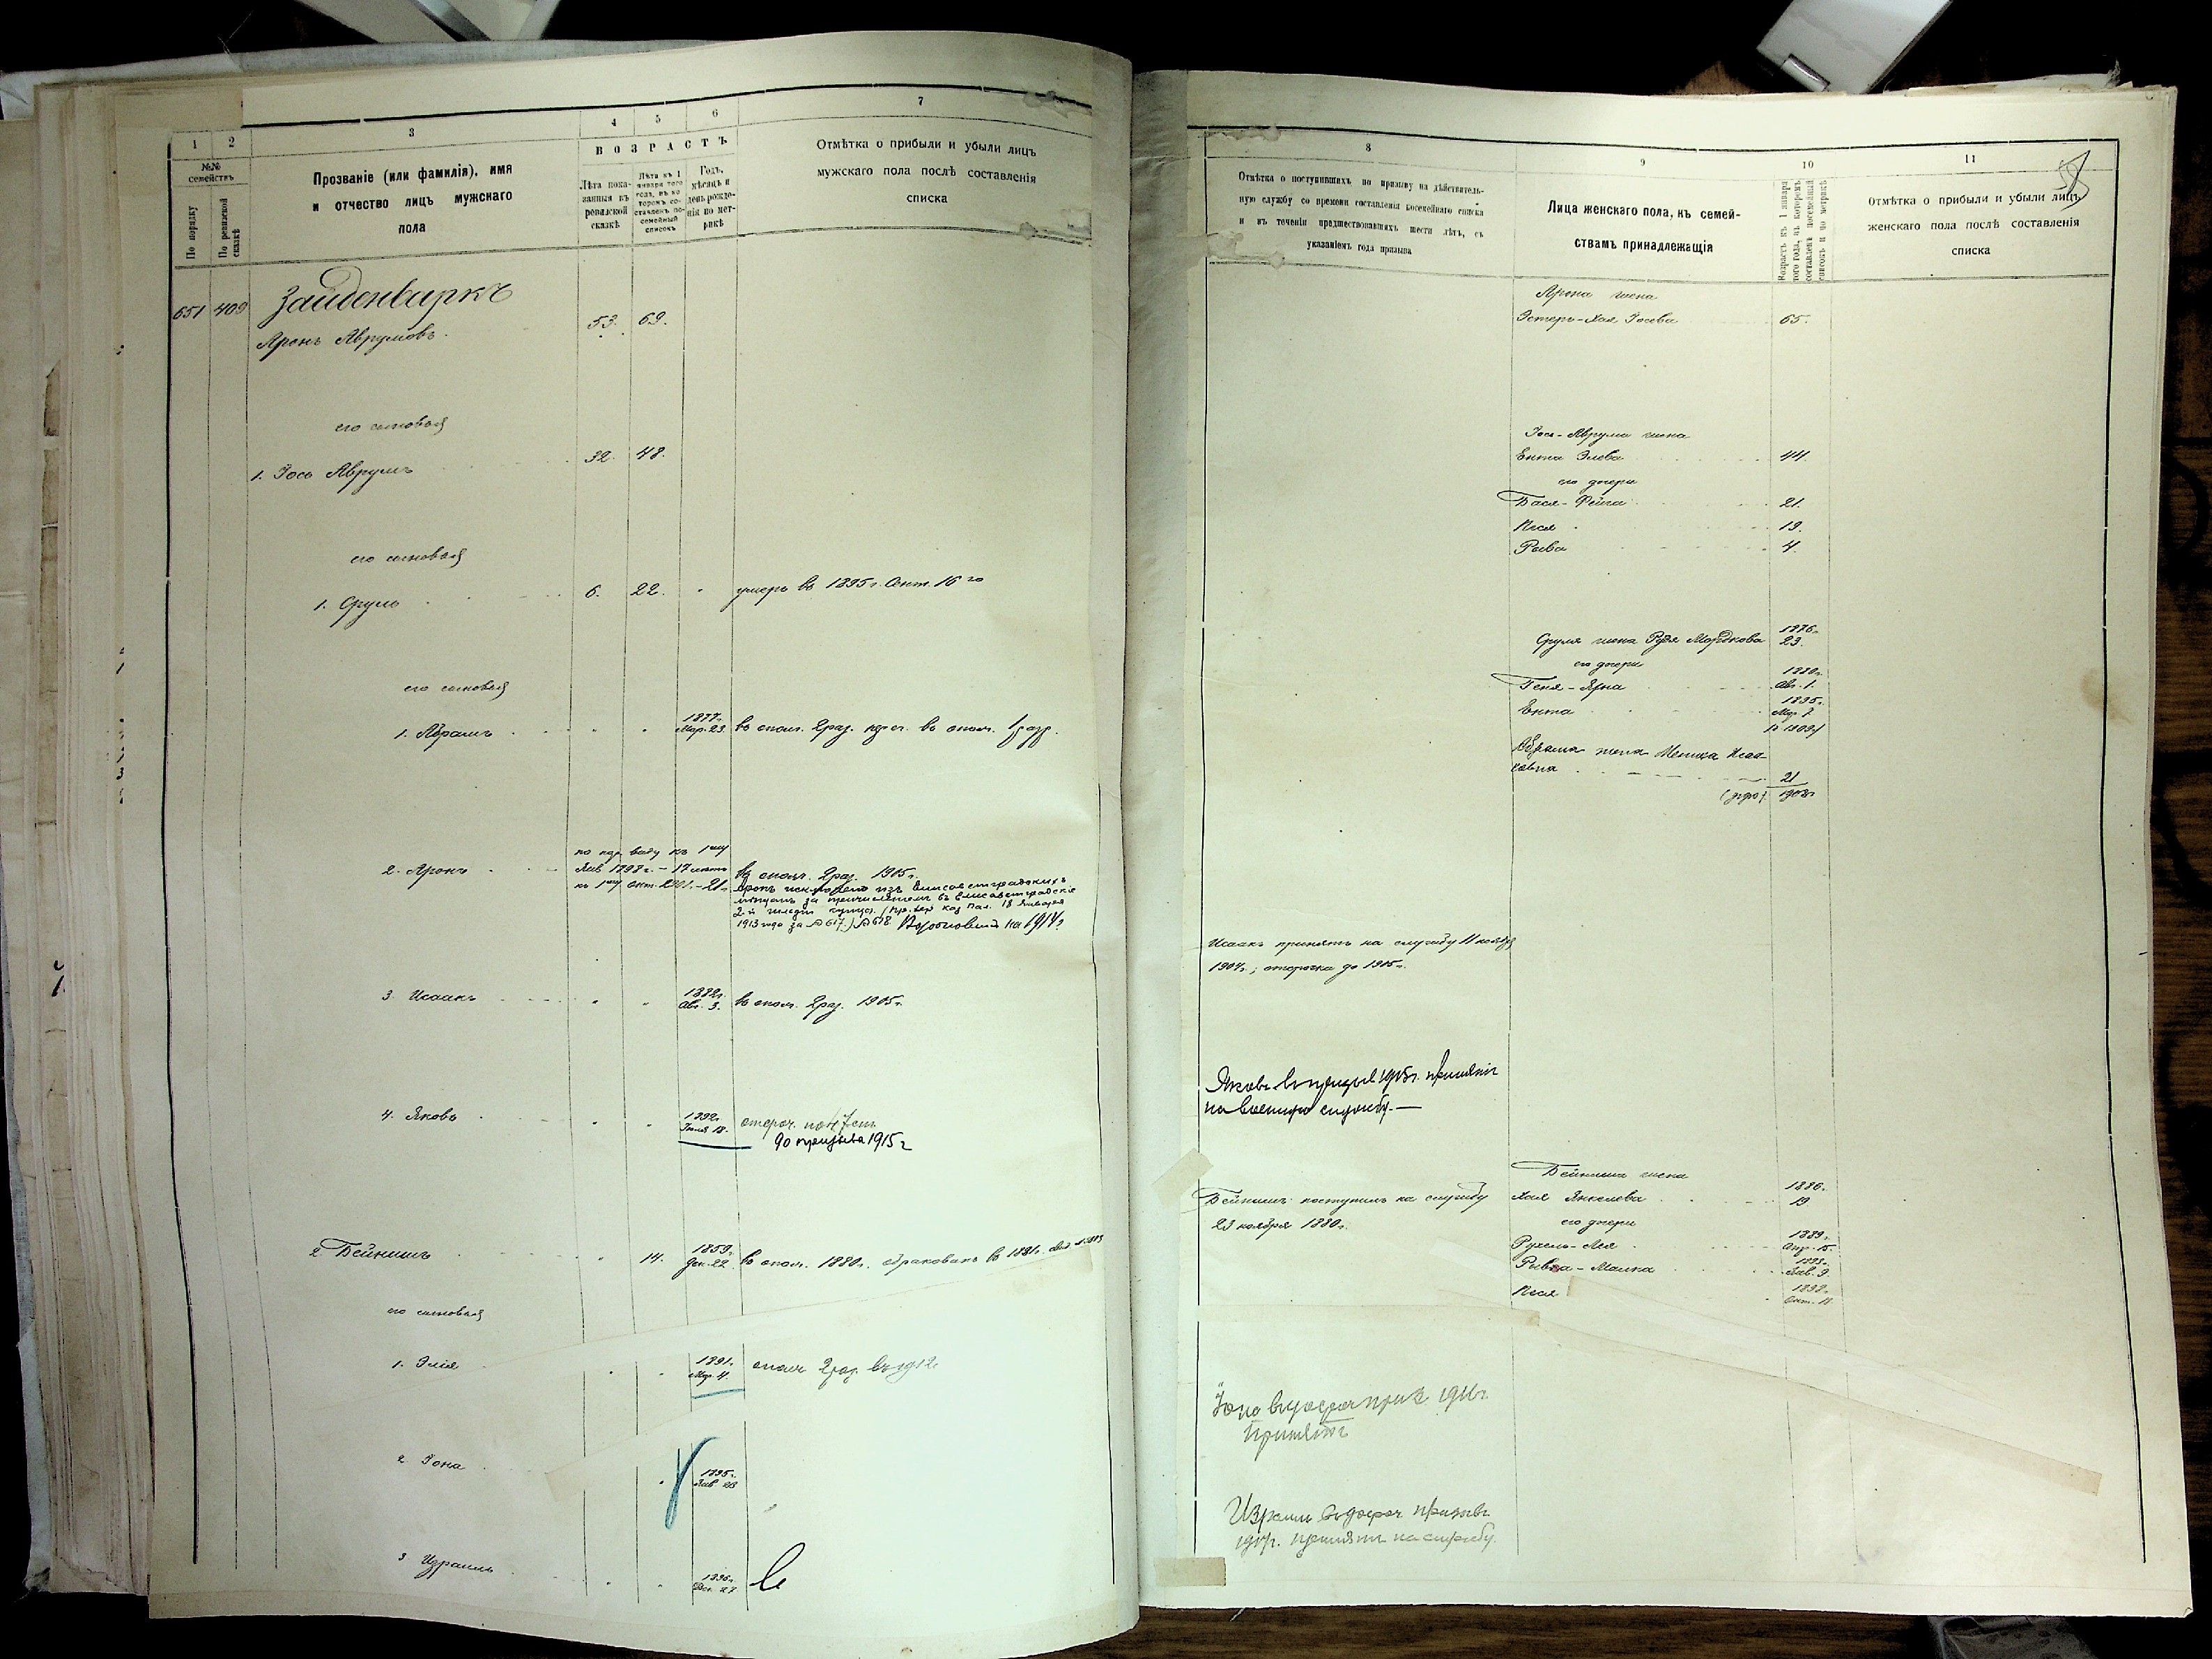 1 2 3 4 5 6 7
№№ семействъ
По порядку
По ревизской сказкѣ
Прозваніе (или фамилія), имя
и отчество лицъ мужскаго
пола
ВОЗРАСТЪ
Лѣта пока-
занныя въ
ревизской
сказкѣ
Лѣта къ 1
января того
года, въ ко-
торомъ со-
ставленъ по-
семейный
списокъ
Годъ,
мѣсяцъ и
день рожде-
нія по мет-
рикѣ
Отмѣтка о прибыли и убыли лицъ
мужскаго пола послѣ составленія
списка
651 409 Зайденваркъ
Аронъ Аврумовъ 53. 69.
его сыновья
1. Іось Аврумъ 32. 48.
его сыновья
1. Сруль 6. 22. умеръ въ 1895 г. Сент. 16 го
его сыновья
1. Абрамъ 1877г.
Мар. 23. въ ополч. 2 раз. въ ополч. 1 разр.
по нар. виду къ 1му
2. Аронъ Янв. 1898 г. - 17 лѣтъ въ ополч. 2 раз. 1905 г.
къ 1му Окт. 1901. - 21 г. Аронъ исключенъ изъ Елисаветградскихъ
мѣщанъ за причисленіемъ въ Елисаветградскіе
2-й гильдіи купцы. Каз. Пал. 18 Января
1913 года за № 617.) № 618. на 1914 г.
3. Исаакъ 1882г.
Авг. 3. въ ополч. 2 раз. 1905 г.
4. Яковъ 1892г.
Іюня 18. отсроч.
до призыва 1915 г
2 Бейнишъ 14. 1859г.
Дек. 22. въ ополч. 1880 г. обракованъ въ 1881 г.
его сыновья
1. Элія 1891г.
Мар. 4. ополч 2 раз. въ 1912
2 Іона 1895г.
Янв 28
3 Израиль 1896г.
27
8 9 10 11
Отмѣтка о поступившихъ по призыву на дѣйствитель-
ную службу со времени составленія посемейнаго списка
и въ теченіи предшествовавшихъ шести лѣтъ, съ
указаніемъ года призыва
Лица женскаго пола, къ семей-
ствамъ принадлежащія
Возрастъ къ 1 января
того года, въ которомъ
составленъ посемейный
списокъ и по метрикѣ
Отмѣтка о прибыли и убыли лицъ
женскаго пола послѣ составленія
списка
Арона жена
Эстеръ-Хая Іосева 65.
Іось-Аврума жена
Ента Элева 44.
его дочери
Бася-Фейга 21.
Песя 19.
Рыва 4.
1876г.
Сруля жена Рудя Мордкова 23.
его дочери
1880г.
Геня-Ярна Авг. 1.
1885г.
Ента Мар. 7.
Абрама жена Исаа-
ковна 21
1903г.
Исаакъ принятъ на службу 11 ноября
1904г.; отсрочка до 1905г.
Яковъ въ призывъ 1915г. принятъ
на военную службу. —
Бейниша жена
1886г.
Бейнишъ поступилъ на службу Хая Янкелева 19.
23 ноября 1880г. его дочери
1889г.
Рухель-Лея Апр. 15.
1893г.
Рывка-Малка Янв. 9.
1898г.
Песя Окт. 18.
Іона въ досроч приз 191 г.
Принятъ
Израиль въ досроч призывъ
191 г. принятъ на службу.